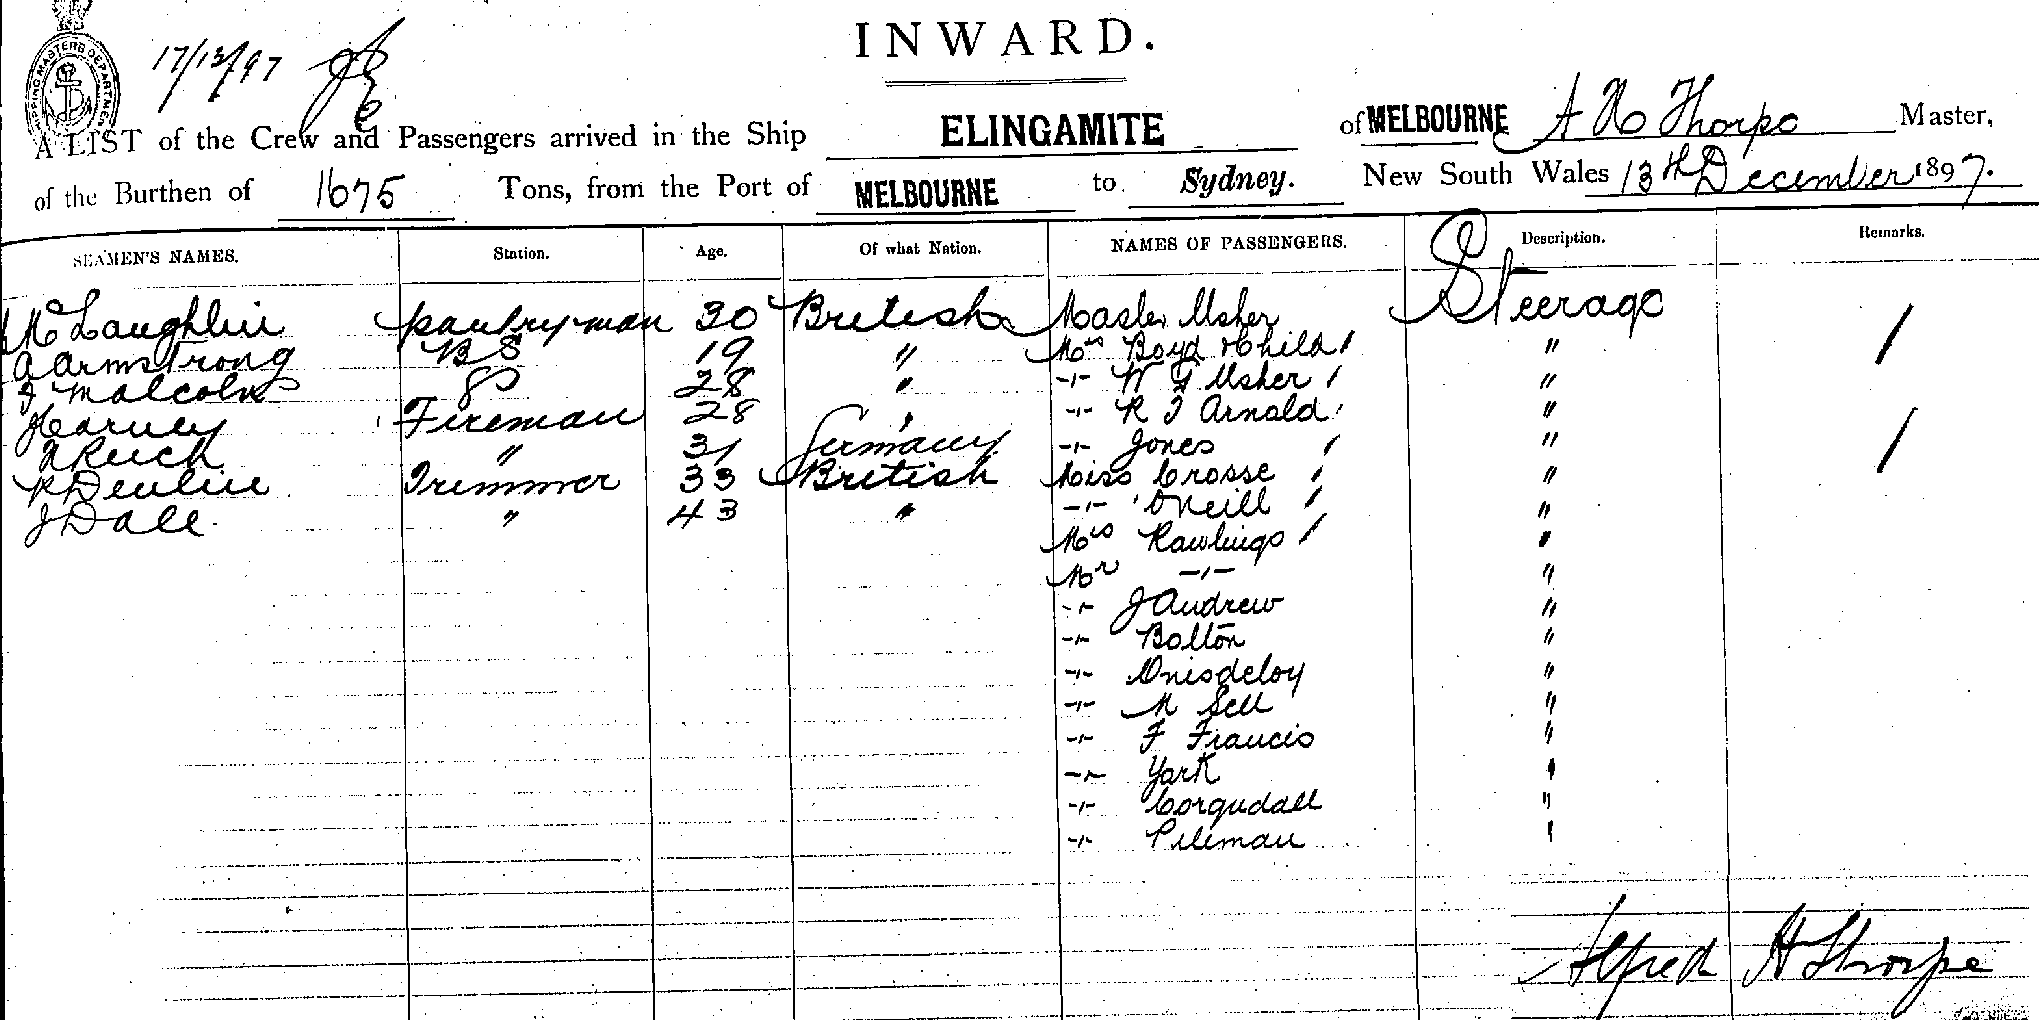 INWARD.
SHIPPING MASTERS DEPARTMENT
17/12/97
A LIST of the Crew and Passengers arrived in the Ship ELINGAMITE of MELBOURNE A H Thorpe Master,
of the Burthen of 1675 Tons, from the Port of MELBOURNE to Sydney. New South Wales 13th December 1897.
SEAMEN'S NAMES. Station. Age. Of what Nation. NAMES OF PASSENGERS. Description. Remarks.
McLaughlin pantryman 30 British Master Usher Steerage /
A Armstrong BS 19 " Mrs Boyd & Child / "
Malcolm 28 " -"- W Usher / "
Fireman 28 " -"- R Arnold / " /
" 31 Germany -"- Jones / "
Devlin Trimmer 33 British Miss Crosse / "
J Dall. " 43 " -"- O'Neill / "
Mrs Rawlings / "
Mr -"- "
-"- J Andrew "
-"- Bolton "
-"- "
-"- M Sell "
-"- F Francis "
-"- York "
-"- Corqudall "
-"- Pileman "
Alfred H Thorpe